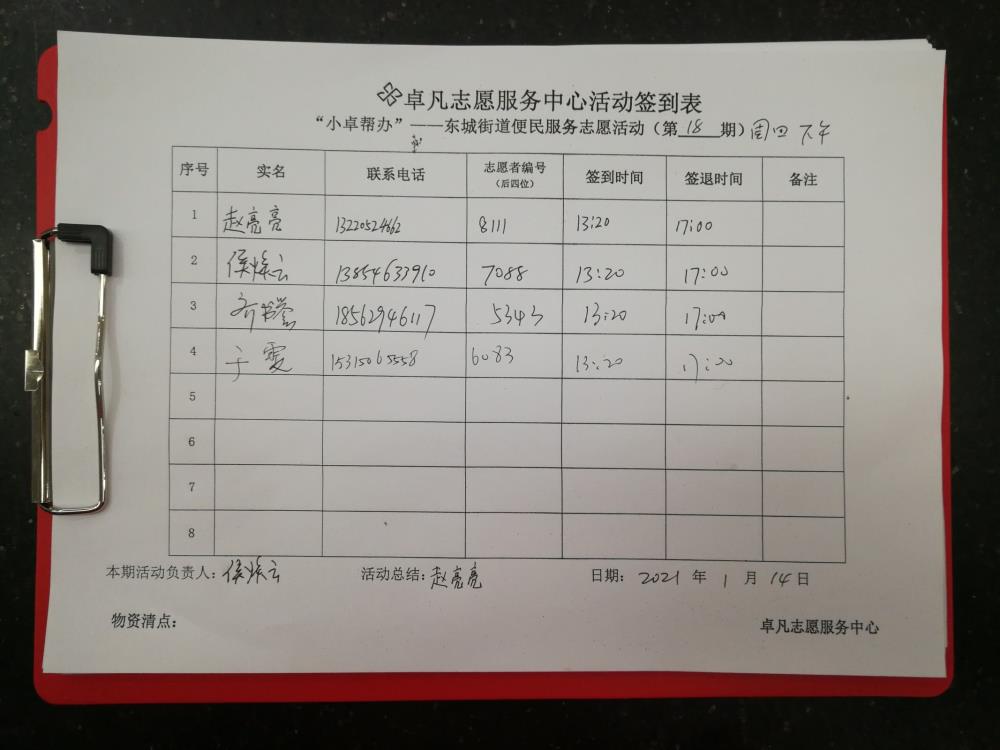 卓凡志愿服务中心活动签到表
“小卓帮办”——东城街道便民服务志愿活动（第18期）周四 下午
序号 实名 联系电话 志愿者编号（后四位） 签到时间 签退时间 备注
1 赵亮亮 13220524662 8111 13:20 17:00
2 侯焕云 13854633910 7088 13:20 17:00
3 齐 18562946117 5343 13:20 17:00
4 于雯 15315065558 6083 13:20 17:00
5
6
7
8
本期活动负责人：侯焕云 活动总结：赵亮亮 日期：2021年1月14日
物资清点：
卓凡志愿服务中心